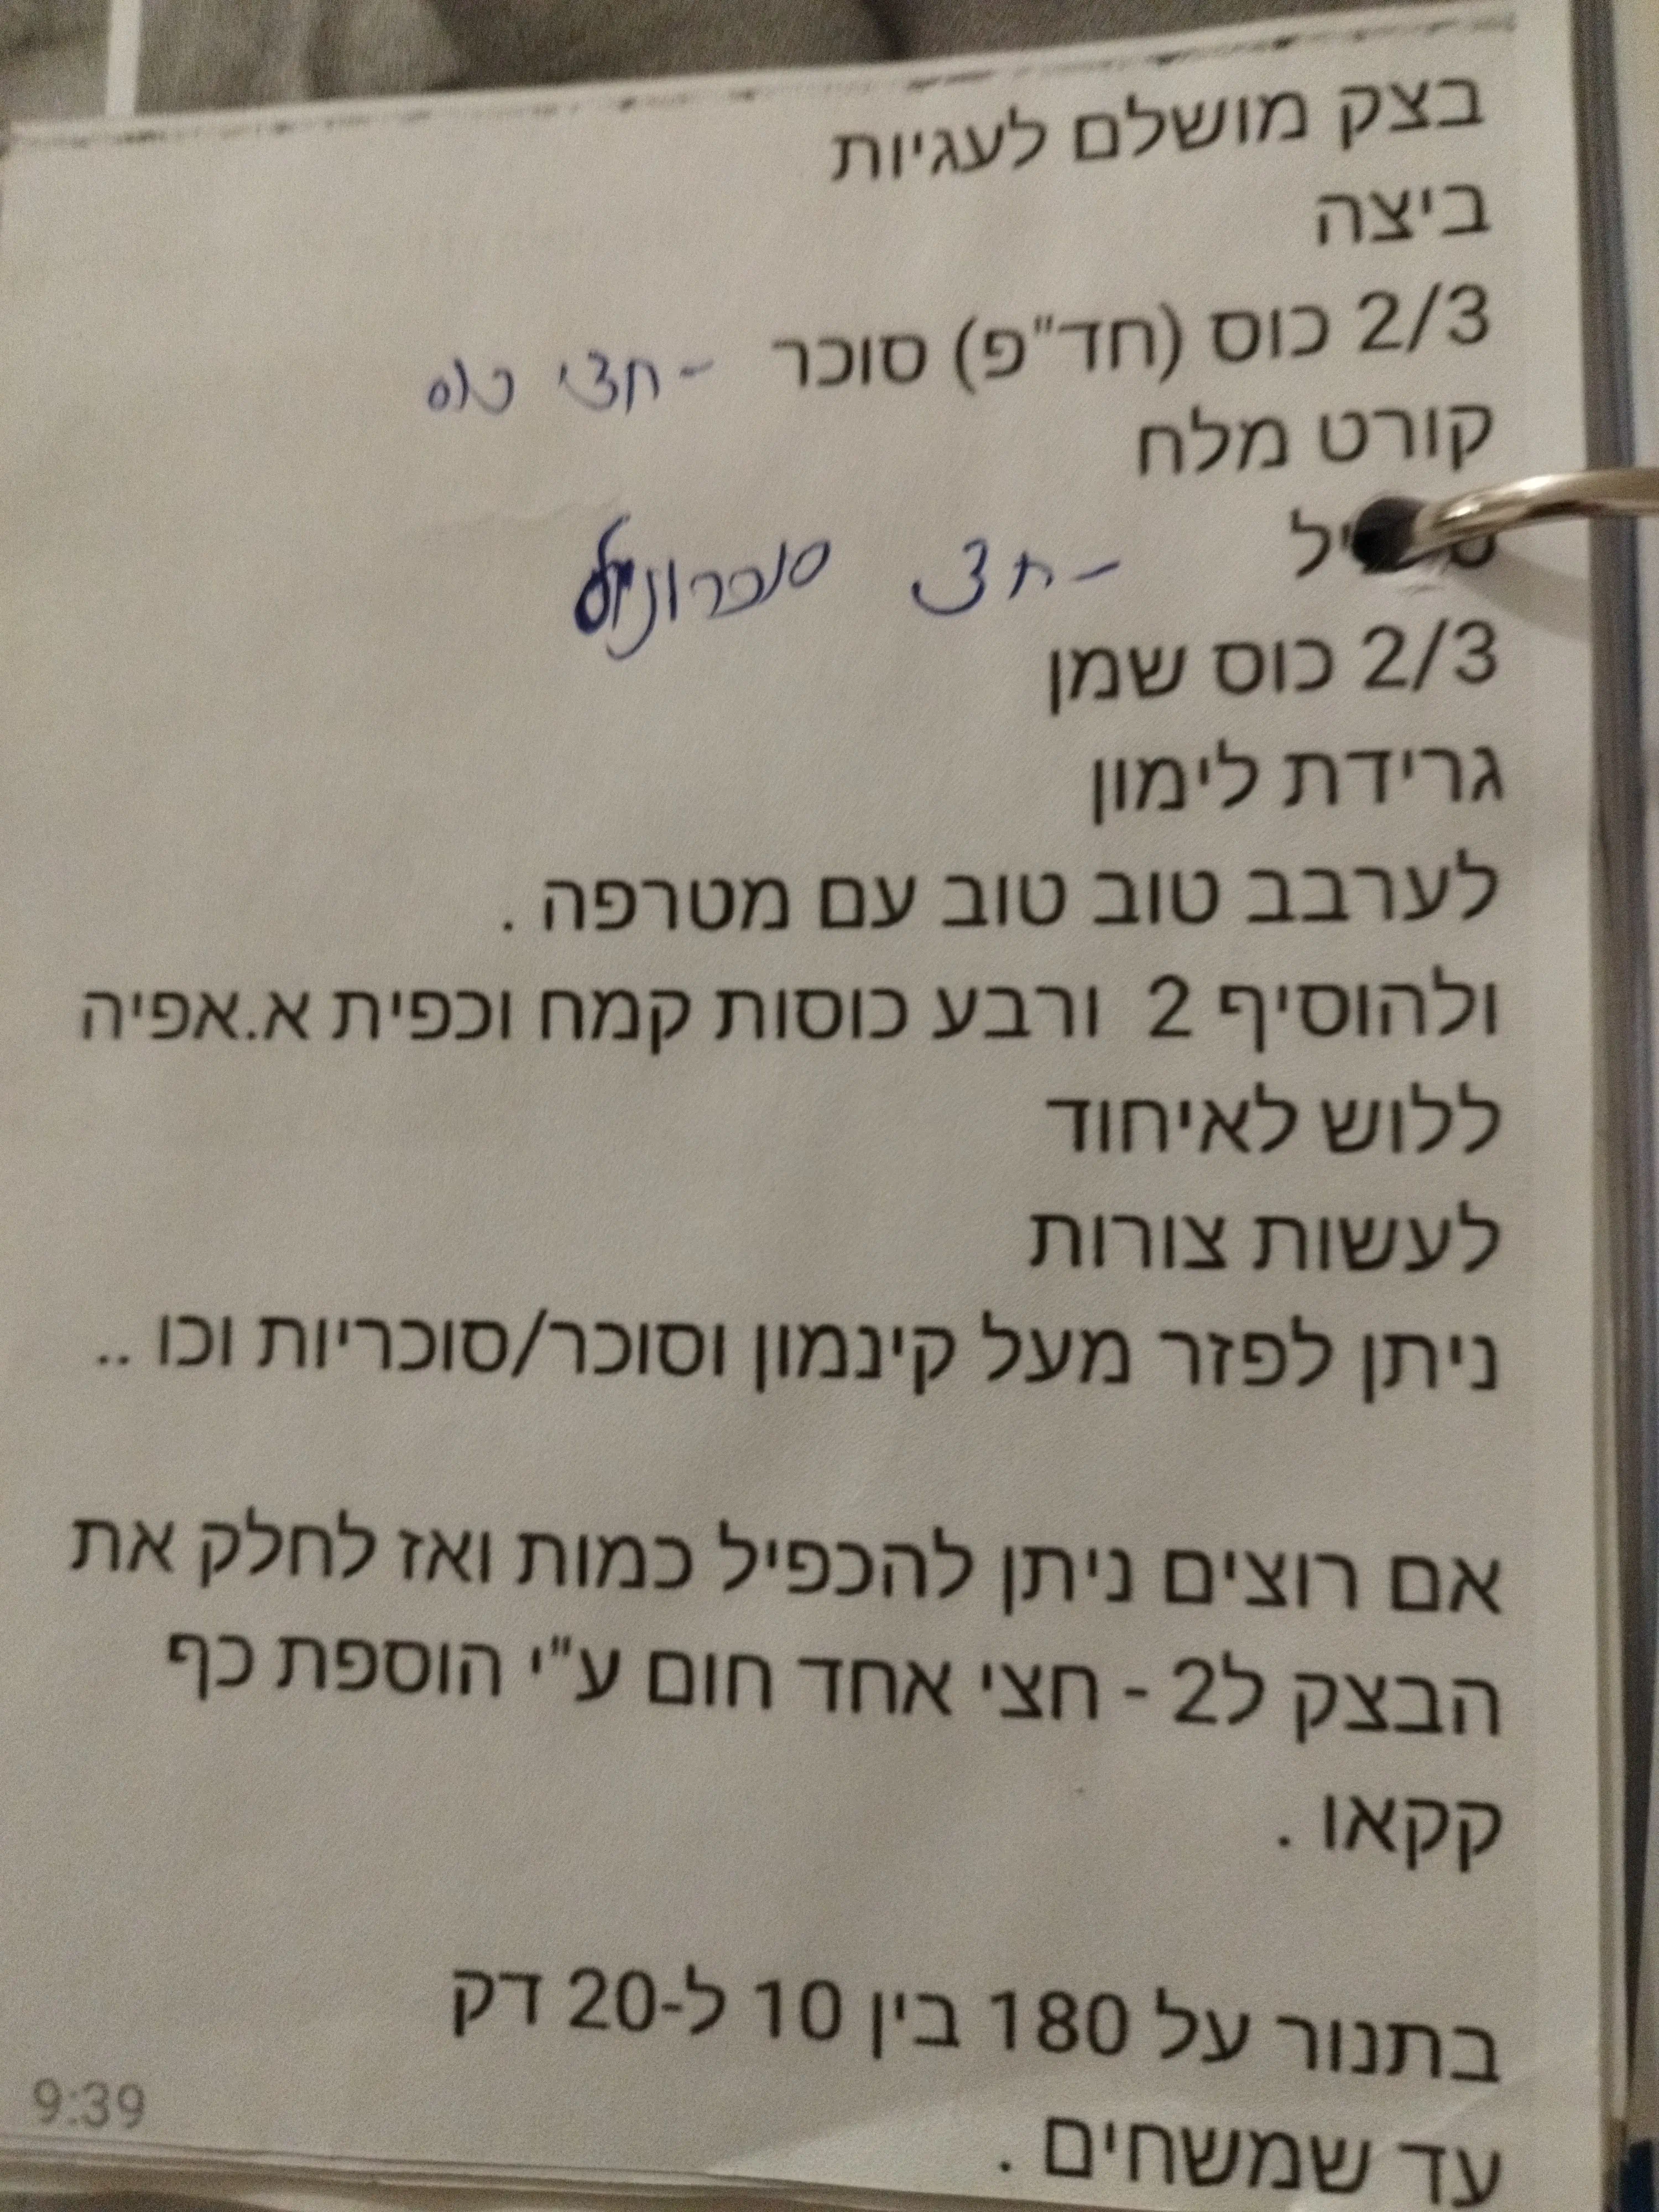 בצק מושלם לעגיות
ביצה
2/3 כוס (חד"פ) סוכר - חצי כוס
קורט מלח
- חצי
2/3 כוס שמן
גרידת לימון
לערבב טוב טוב עם מטרפה .
ולהוסיף 2 ורבע כוסות קמח וכפית א.אפיה
ללוש לאיחוד
לעשות צורות
ניתן לפזר מעל קינמון וסוכר/סוכריות וכו ..
אם רוצים ניתן להכפיל כמות ואז לחלק את
הבצק ל2 - חצי אחד חום ע"י הוספת כף
קקאו .
בתנור על 180 בין 10 ל-20 דק
עד שמשחים .
9:39